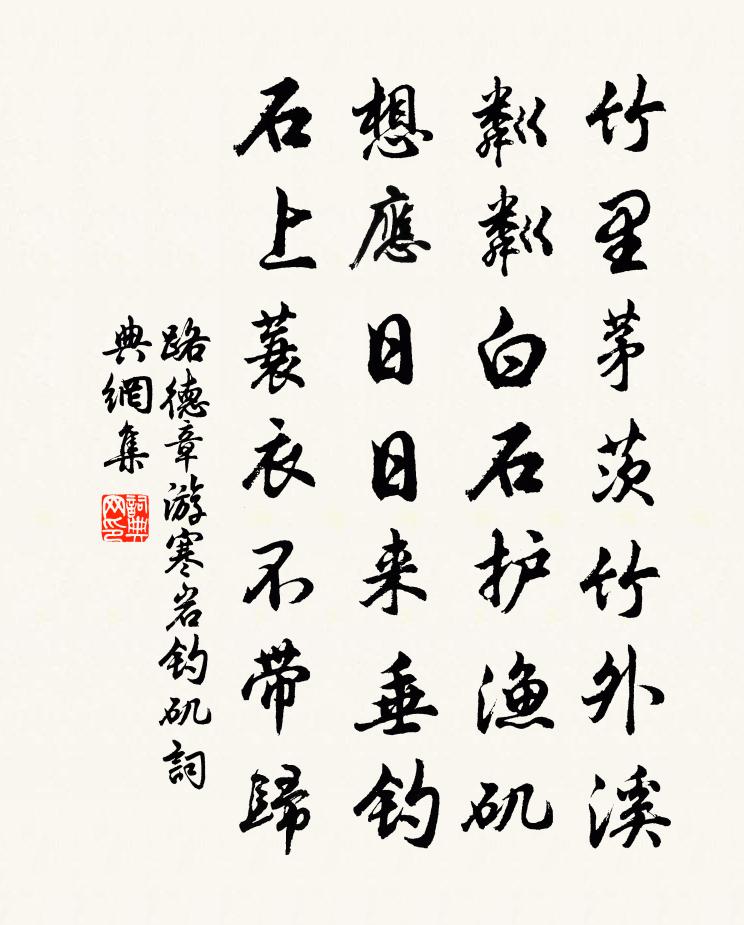 竹里茅茨竹外溪
粼粼白石护渔矶
想應日日来垂钓
石上蓑衣不带歸
路德章游寒岩钓矶詞
典網集
詞典网印